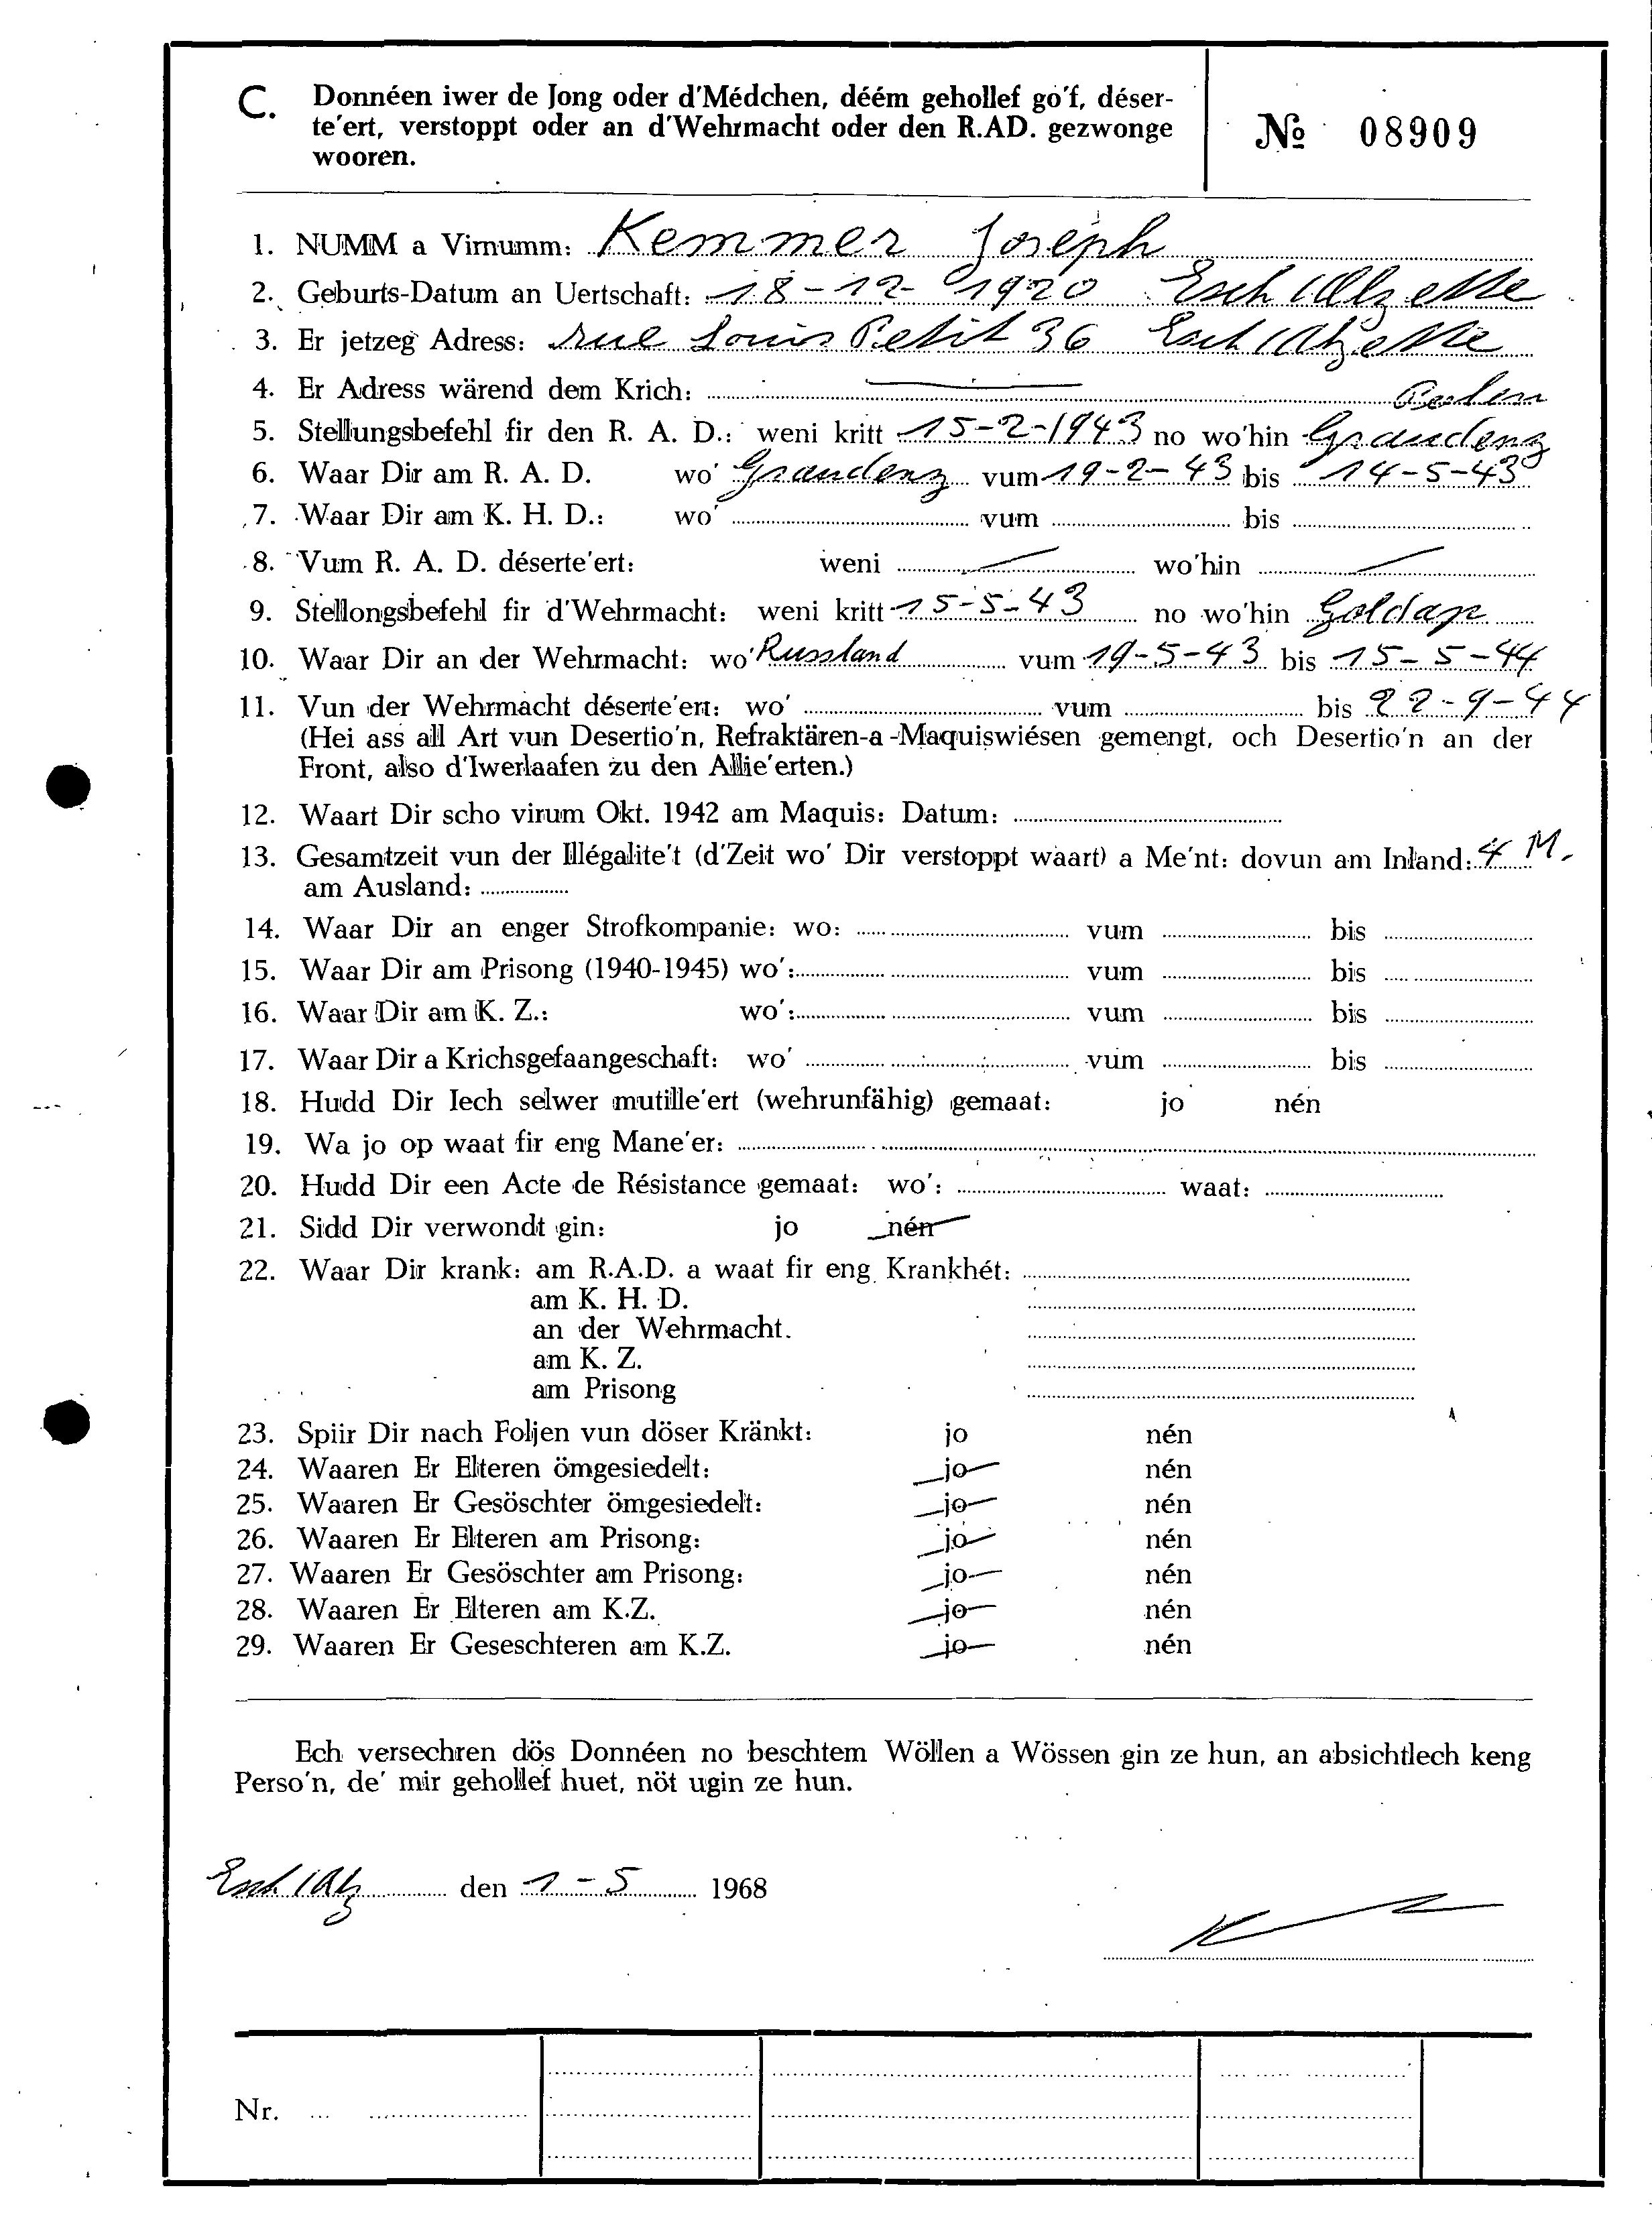 C. Donnéen iwer de Jong oder d'Médchen, déém gehollef go'f, déser-
te'ert, verstoppt oder an d'Wehrmacht oder den R.AD. gezwonge
wooren.
№ 08909
1. NUMM a Virnumm: Kemmer Joseph
2. Geburts-Datum an Uertschaft: 18-12-1920 Esch/Alzette
3. Er jetzeg Adress: rue Louis Petit 36 Esch/Alzette
4. Er Adress wärend dem Krich:
Polen
5. Stellungsbefehl fir den R. A. D.: weni kritt 15-2-1943 no wo'hin Graudenz
6. Waar Dir am R. A. D. wo' Graudenz vum 19-2-43 bis 14-5-43
7. Waar Dir am K. H. D.: wo' vum bis
8. Vum R. A. D. déserte'ert: weni wo'hin
9. Stellongsbefehl fir d'Wehrmacht: weni kritt 15-5-43 no wo'hin Goldap
10. Waar Dir an der Wehrmacht: wo' Russland vum 19-5-43 bis 15-5-44
11. Vun der Wehrmacht déserte'ert: wo' vum bis 22-9-44
(Hei ass all Art vun Desertio'n, Refraktären-a-Maquiswiésen gemengt, och Desertio'n an der
Front, also d'Iwerlaafen zu den Allie'erten.)
12. Waart Dir scho virum Okt. 1942 am Maquis: Datum:
13. Gesamtzeit vun der Illégalite't (d'Zeit wo' Dir verstoppt waart) a Me'nt: dovun am Inland: 4 M.
am Ausland:
14. Waar Dir an enger Strofkompanie: wo: vum bis
15. Waar Dir am Prisong (1940-1945) wo': vum bis
16. Waar Dir am K. Z.: wo': vum bis
17. Waar Dir a Krichsgefaangeschaft: wo' vum bis
18. Hudd Dir Iech selwer mutille'ert (wehrunfähig) gemaat: jo nén
19. Wa jo op waat fir eng Mane'er:
20. Hudd Dir een Acte de Résistance gemaat: wo': waat:
21. Sidd Dir verwondt gin: jo nén
22. Waar Dir krank: am R.A.D. a waat fir eng Krankhét:
am K. H. D.
an der Wehrmacht.
am K. Z.
am Prisong
23. Spiir Dir nach Foljen vun döser Kränkt: jo nén
24. Waaren Er Elteren ömgesiedelt: jo nén
25. Waaren Er Gesöschter ömgesiedelt: jo nén
26. Waaren Er Elteren am Prisong: jo nén
27. Waaren Er Gesöschter am Prisong: jo nén
28. Waaren Er Elteren am K.Z. jo nén
29. Waaren Er Geseschteren am K.Z. jo nén
Ech versechren dös Donnéen no beschtem Wöllen a Wössen gin ze hun, an absichtlech keng
Perso'n, de' mir gehollef huet, nöt ugin ze hun.
Esch/Alz den 1-5 1968
Nr.